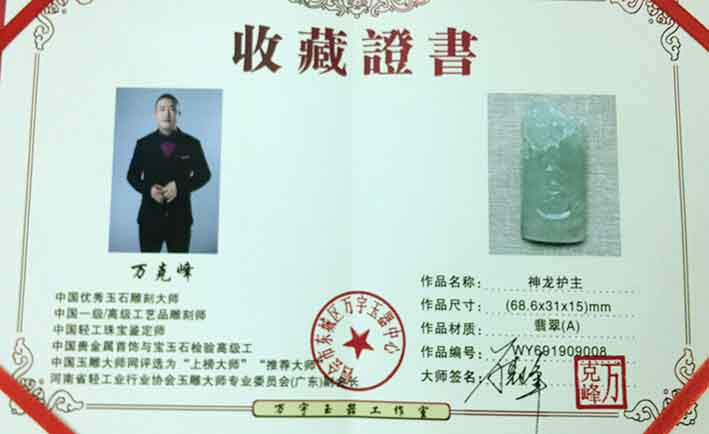 收藏證書
万克峰
中国优秀玉石雕刻大师
中国一级/高级工艺品雕刻师
中国轻工珠宝鉴定师
中国贵金属首饰与宝玉石检验高级工
中国玉雕大师网评选为“上榜大师”“推荐大师”
河南省轻工业行业协会玉雕大师专业委员会(广东)副会长
作品名称: 神龙护主
作品尺寸: (68.6x31x15)mm
作品材质: 翡翠(A)
作品编号: WY691909008
大师签名: 万克峰
万克峰
市东城区万字玉器中心
万字玉器工作室